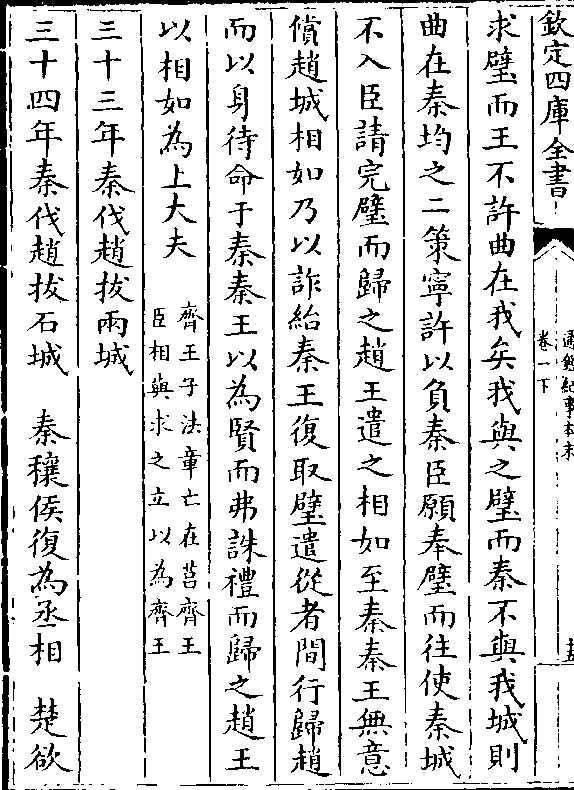 欽定四庫全書
通鑑紀事本末
卷一下
求璧而王不許曲在我矣我與之璧而秦不與我城則
曲在秦均之二策寧許以負秦臣願奉璧而往使秦城
不入臣請完璧而歸之趙王遣之相如至秦秦王無意
償趙城相如乃以詐紿秦王復取璧遣從者間行歸趙
而以身待命于秦秦王以為賢而弗誅禮而歸之趙王
以相如為上大夫
齊王子法章亡在莒齊王
臣相與求之立以為齊王
三十三年秦伐趙拔兩城
三十四年秦伐趙拔石城　秦穰侯復為丞相　楚欲